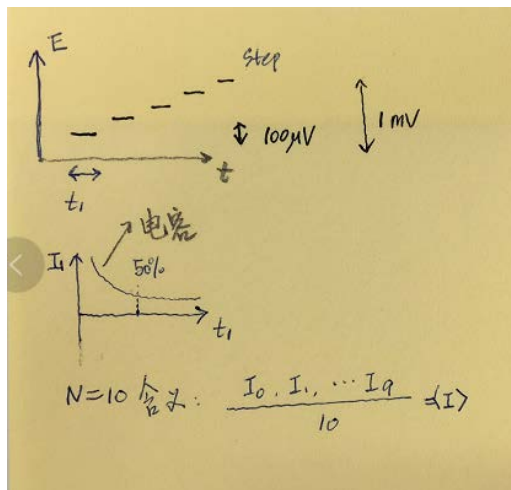 E
Step
100μV
1mV
t
t₁
电容
I₁
50%
t₁
N=10 含义: I₀, I₁, ⋯ I₉ / 10 =⟨I⟩